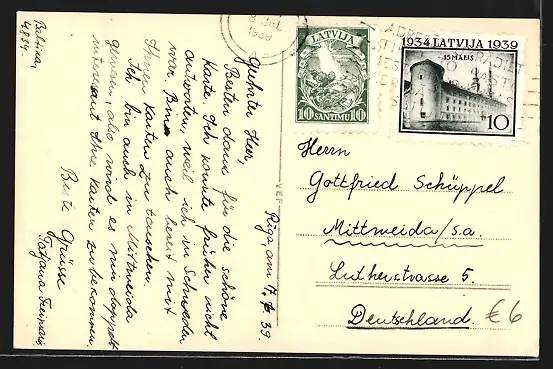 Babina,
4884.
Riga, am 17. 7. 39.
Geehrter Herr,
Besten dank für die schöne
Karte. Ich konnte früher nicht
antworten, weil ich in Schweden
war. Bin auch bereit mit
Ihnen Karten zu tauschen.
Ich bin auch in Mittweida
gewesen, also wird es mir doppelt
interessant Ihre Karten zu bekommen.
Beste Grüsse
Tatjana
1939
LATVIJA
10 SANTIMU 10
1934 LATVIJA 1939
15 MAIJS
10
VEF
Herrn
Gottfried Schüppel
Mittweida/S.a.
Lutherstrasse 5.
Deutschland.
€6